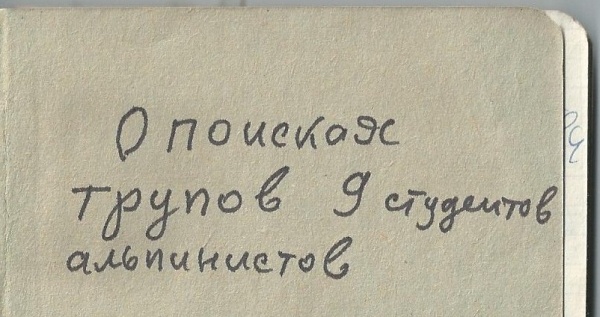 О поисках
трупов 9 студентов
альпинистов